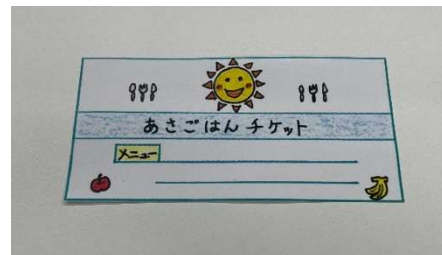 あさごはんチケット
メニュー